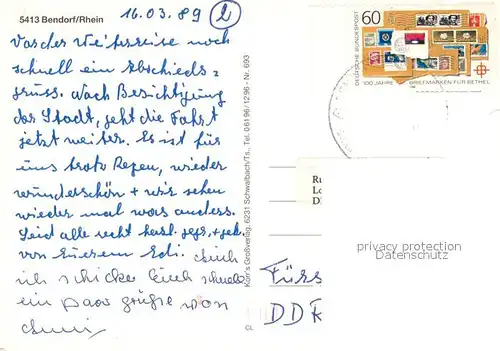 5413 Bendorf/Rhein
16.03.89 2
Vor der Weiterreise noch
schnell ein Abschieds=
gruss. Nach Besichtigung
der Stadt, geht die Fahrt
jetzt weiter. Es ist für
uns trotz Regen, wieder
wunderschön + wir sehen
wieder mal was anders.
Seid alle recht herzl. gegr. + gek.
von Eurem Edi. Auch
ich schicke Euch schnell
ein paar Grüße von
Korr's Großverlag, 6231 Schwalbach/Ts., Tel. 06196/1296 - Nr. 693
CL
60
DEUTSCHE BUNDESPOST
100 JAHRE BRIEFMARKEN FÜR BETHEL
Ru
Lo
D
privacy protection
Datenschutz
Fürs
DDR